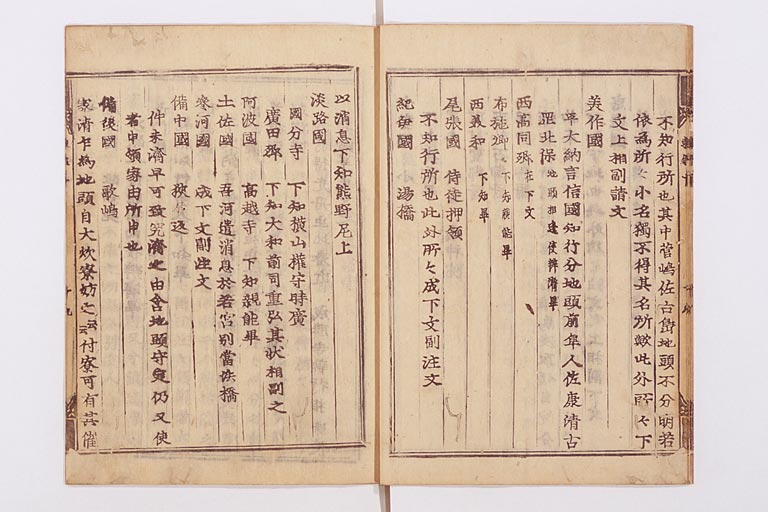 不知行所也其中菅嶋佐古嶋地頭不分明若
依為所々小名獨不得其名所歟此外所々下
文上相副請文
美作國
平大納言信國知行分地頭前隼人佐康清古
西高同郷在下文
布施郷 下文
西美和 下知畢
尾張國 侍従押領
不知行所也此外所々成下文副注文
紀伊國 小湯橋
以消息下知熊野尼上
淡路國
國分寺 下知横山権守時廣
廣田郷 下知大和前司重弘其状相副之
阿波國 高越寺 下知親能畢
土佐國 吾河遣消息於若宮別當供橋
参河國 成下文副注文
備中國
件未濟早可致究濟之由含地頭守定仍又使
者中領家由所申也
備後國 歌嶋
未濟乍為地頭自大炊寮妨之云云付寮可有其催